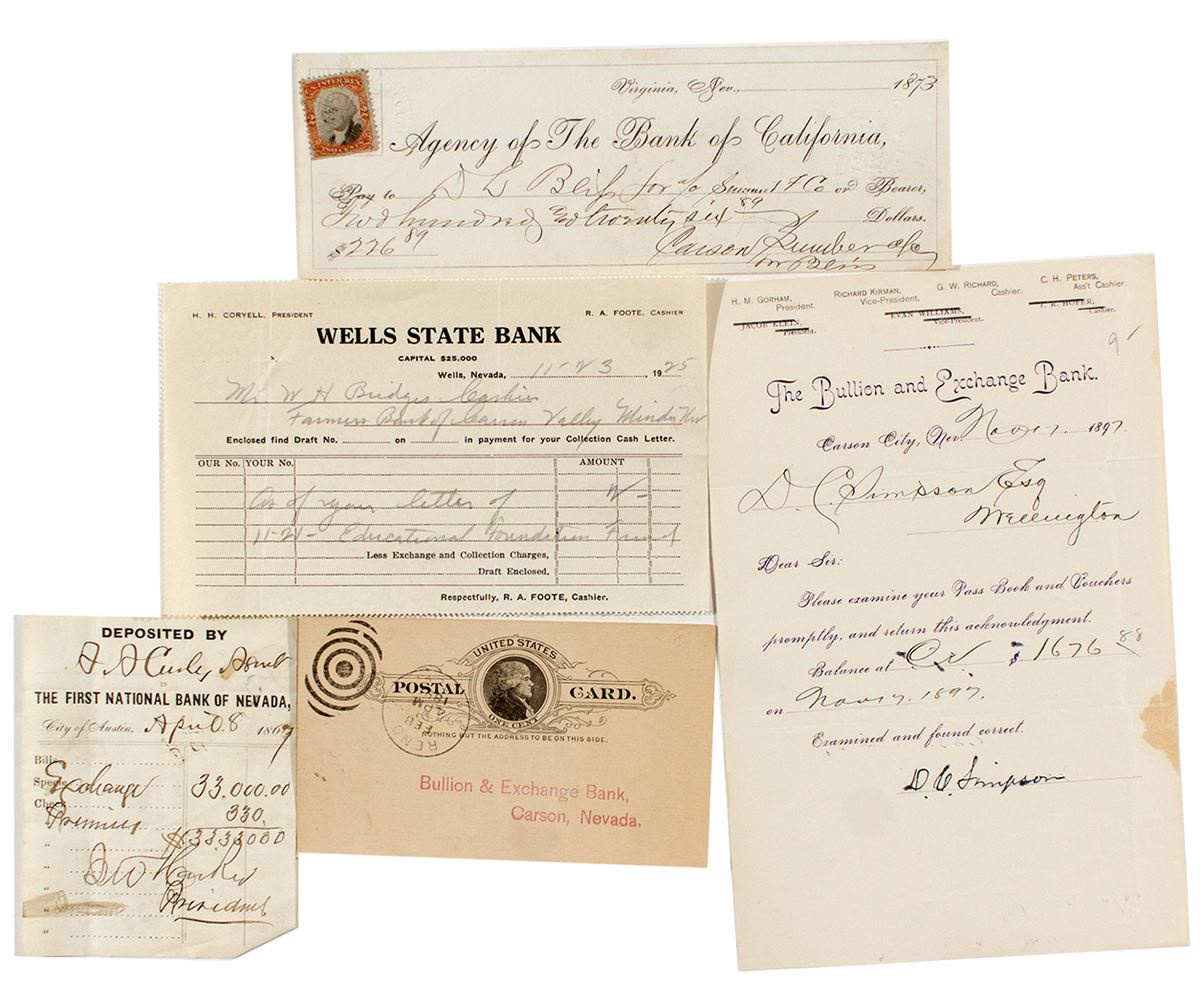 Virginia, Nev., 1873
U.S. INTER. REV.
TWO CENTS
Agency of The Bank of California,
Pay to D L Bliss for a/c Summit F Co or Bearer,
Two hundred and twenty six 89 Dollars.
$226 89
Carson Lumber
H. H. CORYELL, PRESIDENT R. A. FOOTE, CASHIER
WELLS STATE BANK
CAPITAL $25,000
Wells, Nevada, 11-23, 1925
Mr W H Bridges Cashier
Farmers Bank of Carson Valley Minden Nev
Enclosed find Draft No. on in payment for your Collection Cash Letter.
OUR No. YOUR No. AMOUNT
As of your letter of
11-21- Educational Foundation Fund
Less Exchange and Collection Charges,
Draft Enclosed,
Respectfully, R. A. FOOTE, Cashier.
H. M. GORHAM, President. RICHARD KIRMAN, Vice-President. G. W. RICHARD, Cashier. C. H. PETERS, Ass't Cashier.
JACOB KLEIN, President. EVAN WILLIAMS, Vice-President. T. R. HOFER, Cashier.
The Bullion and Exchange Bank.
Carson City, Nev. Nov 7. 1897
D. C. Simpson Esq
Wellington
Dear Sir:
Please examine your Pass Book and Vouchers
promptly, and return this acknowledgment.
Balance at Cr $ 1676 88
on Nov 7. 1897.
Examined and found correct.
D. C. Simpson
DEPOSITED BY
IN
THE FIRST NATIONAL BANK OF NEVADA,
City of Austin, April 8 1867
Bills
Specie Exchange 33.000.00
Checks Premium 330.
$33.330.00
President
UNITED STATES
POSTAL CARD.
ONE CENT
NOTHING BUT THE ADDRESS TO BE ON THIS SIDE.
RENO
FEB
Bullion & Exchange Bank,
Carson, Nevada.